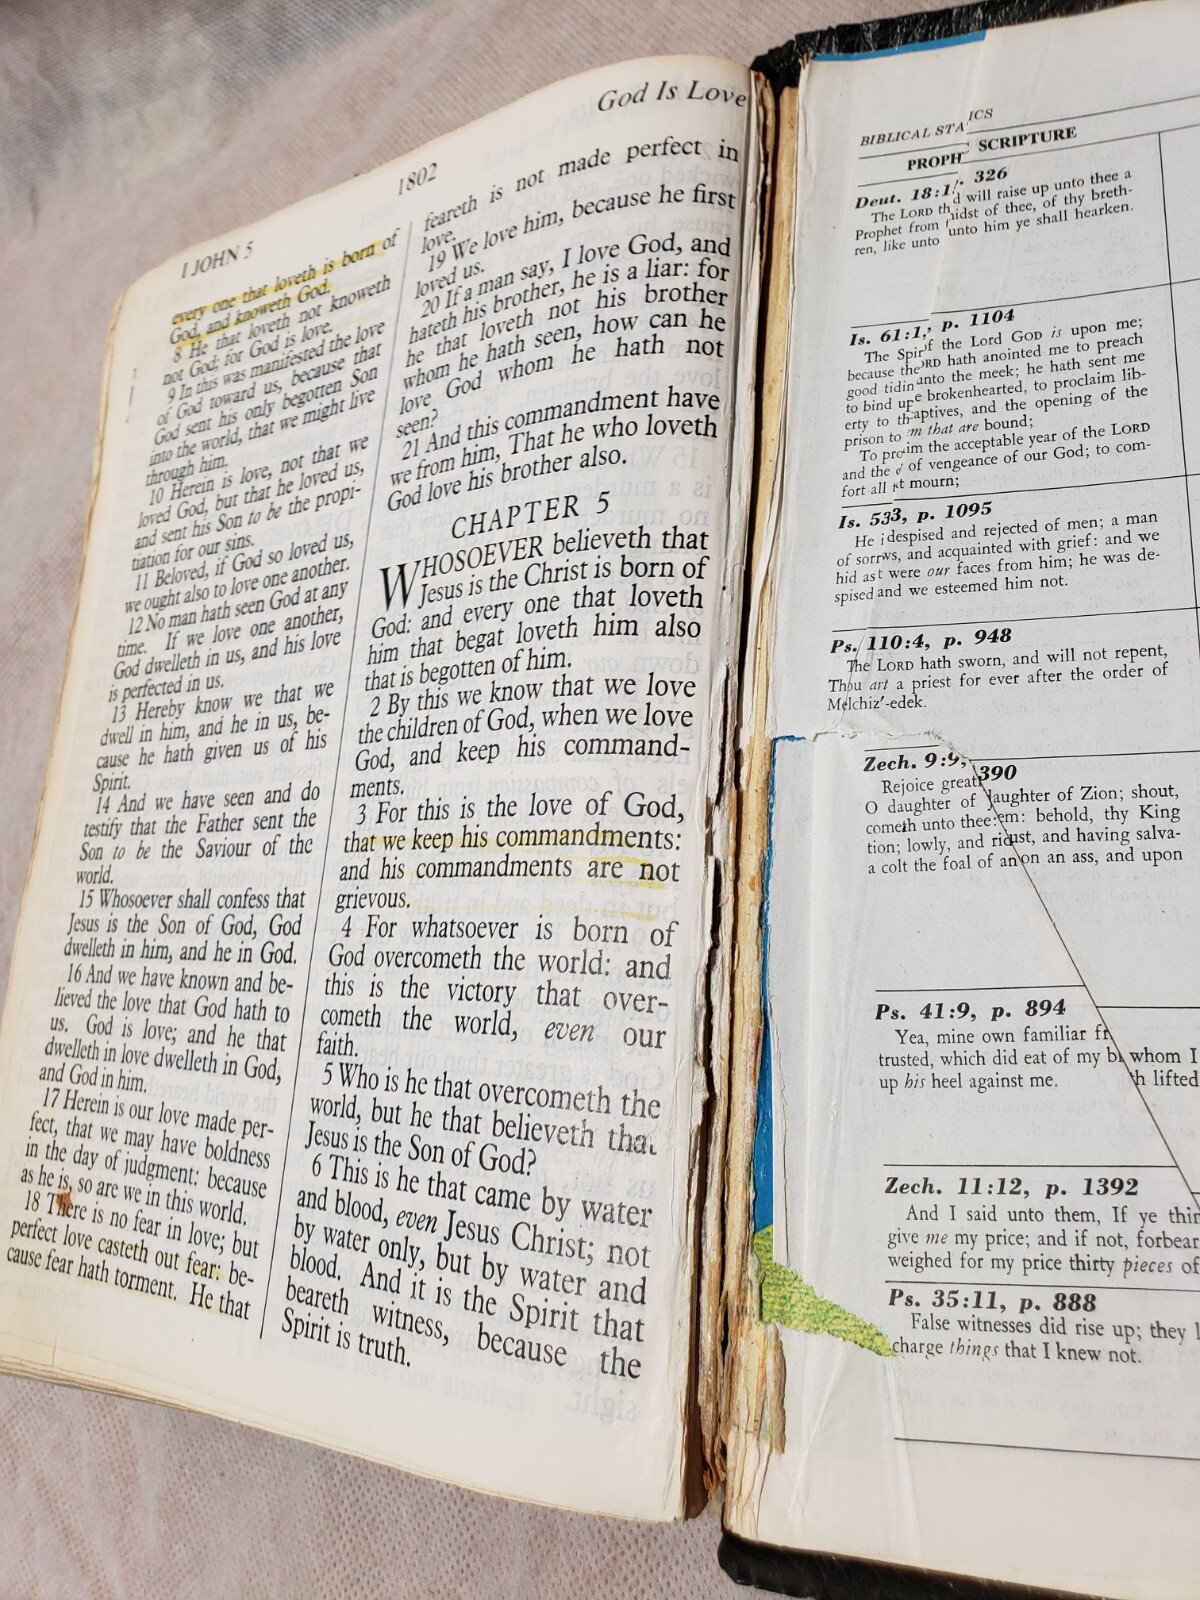 I JOHN 5
1802
God Is Love
every one that loveth is born of
God, and knoweth God.
8 He that loveth not knoweth
not God; for God is love.
9 In this was manifested the love
of God toward us, because that
God sent his only begotten Son
into the world, that we might live
through him.
10 Herein is love, not that we
loved God, but that he loved us,
and sent his Son to be the propi-
tiation for our sins.
11 Beloved, if God so loved us,
we ought also to love one another.
12 No man hath seen God at any
time. If we love one another,
God dwelleth in us, and his love
is perfected in us.
13 Hereby know we that we
dwell in him, and he in us, be-
cause he hath given us of his
Spirit.
14 And we have seen and do
testify that the Father sent the
Son to be the Saviour of the
world.
15 Whosoever shall confess that
Jesus is the Son of God, God
dwelleth in him, and he in God.
16 And we have known and be-
lieved the love that God hath to
us. God is love; and he that
dwelleth in love dwelleth in God,
and God in him.
17 Herein is our love made per-
fect, that we may have boldness
in the day of judgment: because
as he is, so are we in this world.
18 There is no fear in love; but
perfect love casteth out fear: be-
cause fear hath torment. He that
feareth is not made perfect in
love.
19 We love him, because he first
loved us.
20 If a man say, I love God, and
hateth his brother, he is a liar: for
he that loveth not his brother
whom he hath seen, how can he
love God whom he hath not
seen?
21 And this commandment have
we from him, That he who loveth
God love his brother also.
CHAPTER 5
WHOSOEVER believeth that
Jesus is the Christ is born of
God: and every one that loveth
him that begat loveth him also
that is begotten of him.
2 By this we know that we love
the children of God, when we love
God, and keep his command-
ments.
3 For this is the love of God,
that we keep his commandments:
and his commandments are not
grievous.
4 For whatsoever is born of
God overcometh the world: and
this is the victory that over-
cometh the world, even our
faith.
5 Who is he that overcometh the
world, but he that believeth that
Jesus is the Son of God?
6 This is he that came by water
and blood, even Jesus Christ; not
by water only, but by water and
blood. And it is the Spirit that
beareth witness, because the
Spirit is truth.
BIBLICAL STA ICS
PROPH SCRIPTURE
Deut. 18:1 326
The LORD th d will raise up unto thee a
Prophet from idst of thee, of thy breth-
ren, like unto unto him ye shall hearken.
Is. 61:1, p. 1104
The Spir f the Lord GOD is upon me;
because the ORD hath anointed me to preach
good tidin unto the meek; he hath sent me
to bind up e brokenhearted, to proclaim lib-
erty to th aptives, and the opening of the
prison to m that are bound;
To pro im the acceptable year of the LORD
and the of vengeance of our God; to com-
fort all t mourn;
Is. 53 3, p. 1095
He i despised and rejected of men; a man
of sorr ws, and acquainted with grief: and we
hid as t were our faces from him; he was de-
spised and we esteemed him not.
Ps. 110:4, p. 948
The LORD hath sworn, and will not repent,
Thou art a priest for ever after the order of
Melchiz'-edek.
Zech. 9:9, 390
Rejoice great aughter of Zion; shout,
O daughter of em: behold, thy King
cometh unto thee: ust, and having salva-
tion; lowly, and rid on an ass, and upon
a colt the foal of an
Ps. 41:9, p. 894
Yea, mine own familiar fr whom I
trusted, which did eat of my b h lifted
up his heel against me.
Zech. 11:12, p. 1392
And I said unto them, If ye thin
give me my price; and if not, forbear
weighed for my price thirty pieces of
Ps. 35:11, p. 888
False witnesses did rise up; they l
charge things that I knew not.